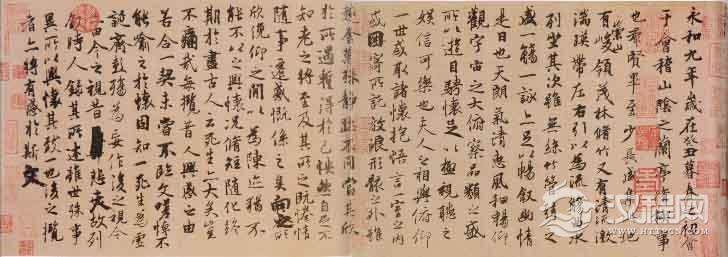 永和九年歲在癸丑暮春之初會
于會稽山陰之蘭亭脩稧事
也群賢畢至少長咸集此地
有崇山峻領茂林脩竹又有清流激
湍暎帶左右引以為流觴曲水
列坐其次雖無絲竹管弦之
盛一觴一詠亦足以暢敘幽情
是日也天朗氣清惠風和暢仰
觀宇宙之大俯察品類之盛
所以遊目騁懷足以極視聽之
娛信可樂也夫人之相與俯仰
一世或取諸懷抱悟言一室之內
或因寄所託放浪形骸之外雖
趣舍萬殊靜躁不同當其欣
於所遇蹔得於己怏然自足不
知老之將至及其所之既惓情
隨事遷感慨係之矣向之所
欣俛仰之閒以為陳迹猶不
能不以之興懷況脩短隨化終
期於盡古人云死生亦大矣豈
不痛哉每攬昔人興感之由
若合一契未嘗不臨文嗟悼不
能喻之於懷固知一死生為虛
誕齊彭殤為妄作後之視今
亦由今之視昔悲夫故列
敘時人錄其所述雖世殊事
異所以興懷其致一也後之攬
者亦將有感於斯文
汉程网